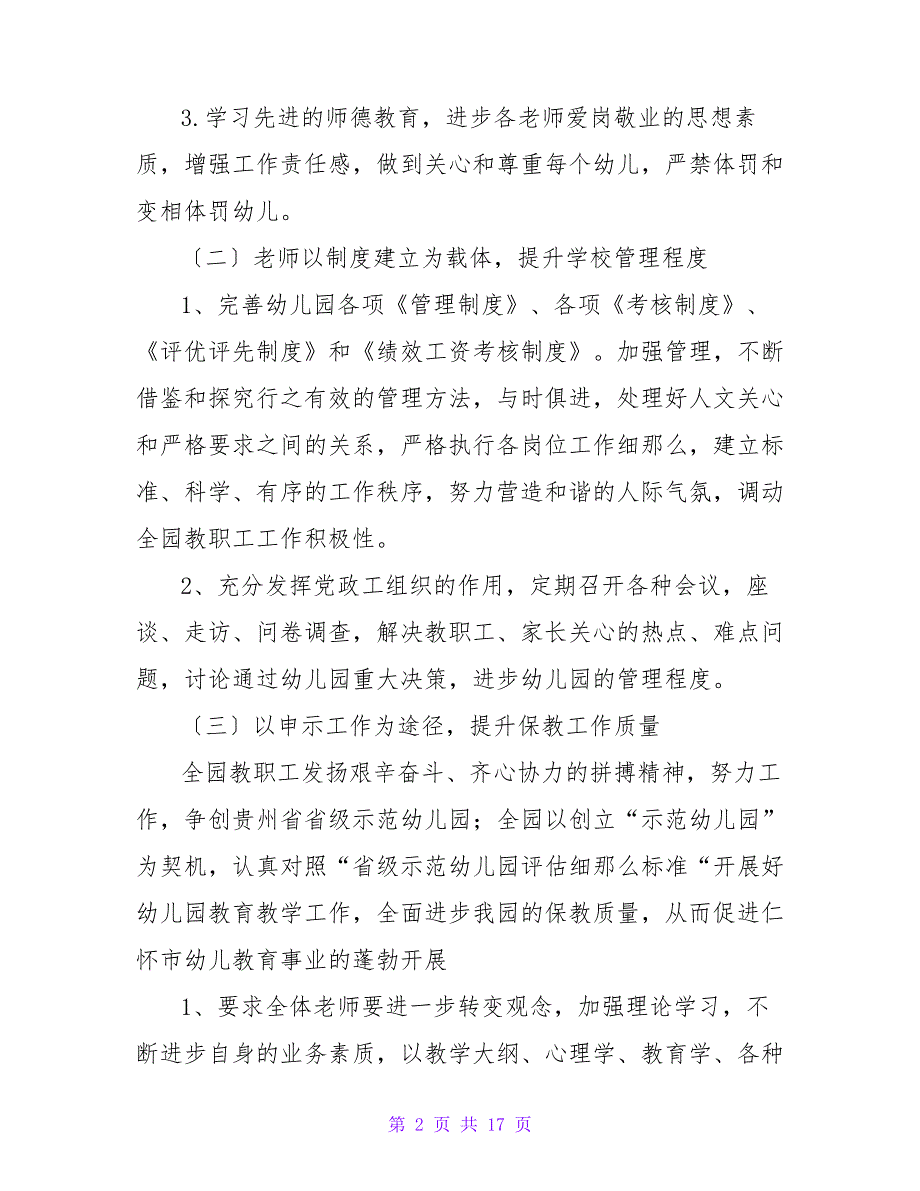 3.学习先进的师德教育，进步各老师爱岗敬业的思想素
质，增强工作责任感，做到关心和尊重每个幼儿，严禁体罚和
变相体罚幼儿。
〔二〕老师以制度建立为载体，提升学校管理程度
1、完善幼儿园各项《管理制度》、各项《考核制度》、
《评优评先制度》和《绩效工资考核制度》。加强管理，不断
借鉴和探究行之有效的管理方法，与时俱进，处理好人文关心
和严格要求之间的关系，严格执行各岗位工作细那么，建立标
准、科学、有序的工作秩序，努力营造和谐的人际气氛，调动
全园教职工工作积极性。
2、充分发挥党政工组织的作用，定期召开各种会议，座
谈、走访、问卷调查，解决教职工、家长关心的热点、难点问
题，讨论通过幼儿园重大决策，进步幼儿园的管理程度。
〔三〕以申示工作为途径，提升保教工作质量
全园教职工发扬艰辛奋斗、齐心协力的拼搏精神，努力工
作，争创贵州省省级示范幼儿园；全园以创立“示范幼儿园”
为契机，认真对照“省级示范幼儿园评估细那么标准“开展好
幼儿园教育教学工作，全面进步我园的保教质量，从而促进仁
怀市幼儿教育事业的蓬勃开展
1、要求全体老师要进一步转变观念，加强理论学习，不
断进步自身的业务素质，以教学大纲、心理学、教育学、各种
第 2 页 共 17 页